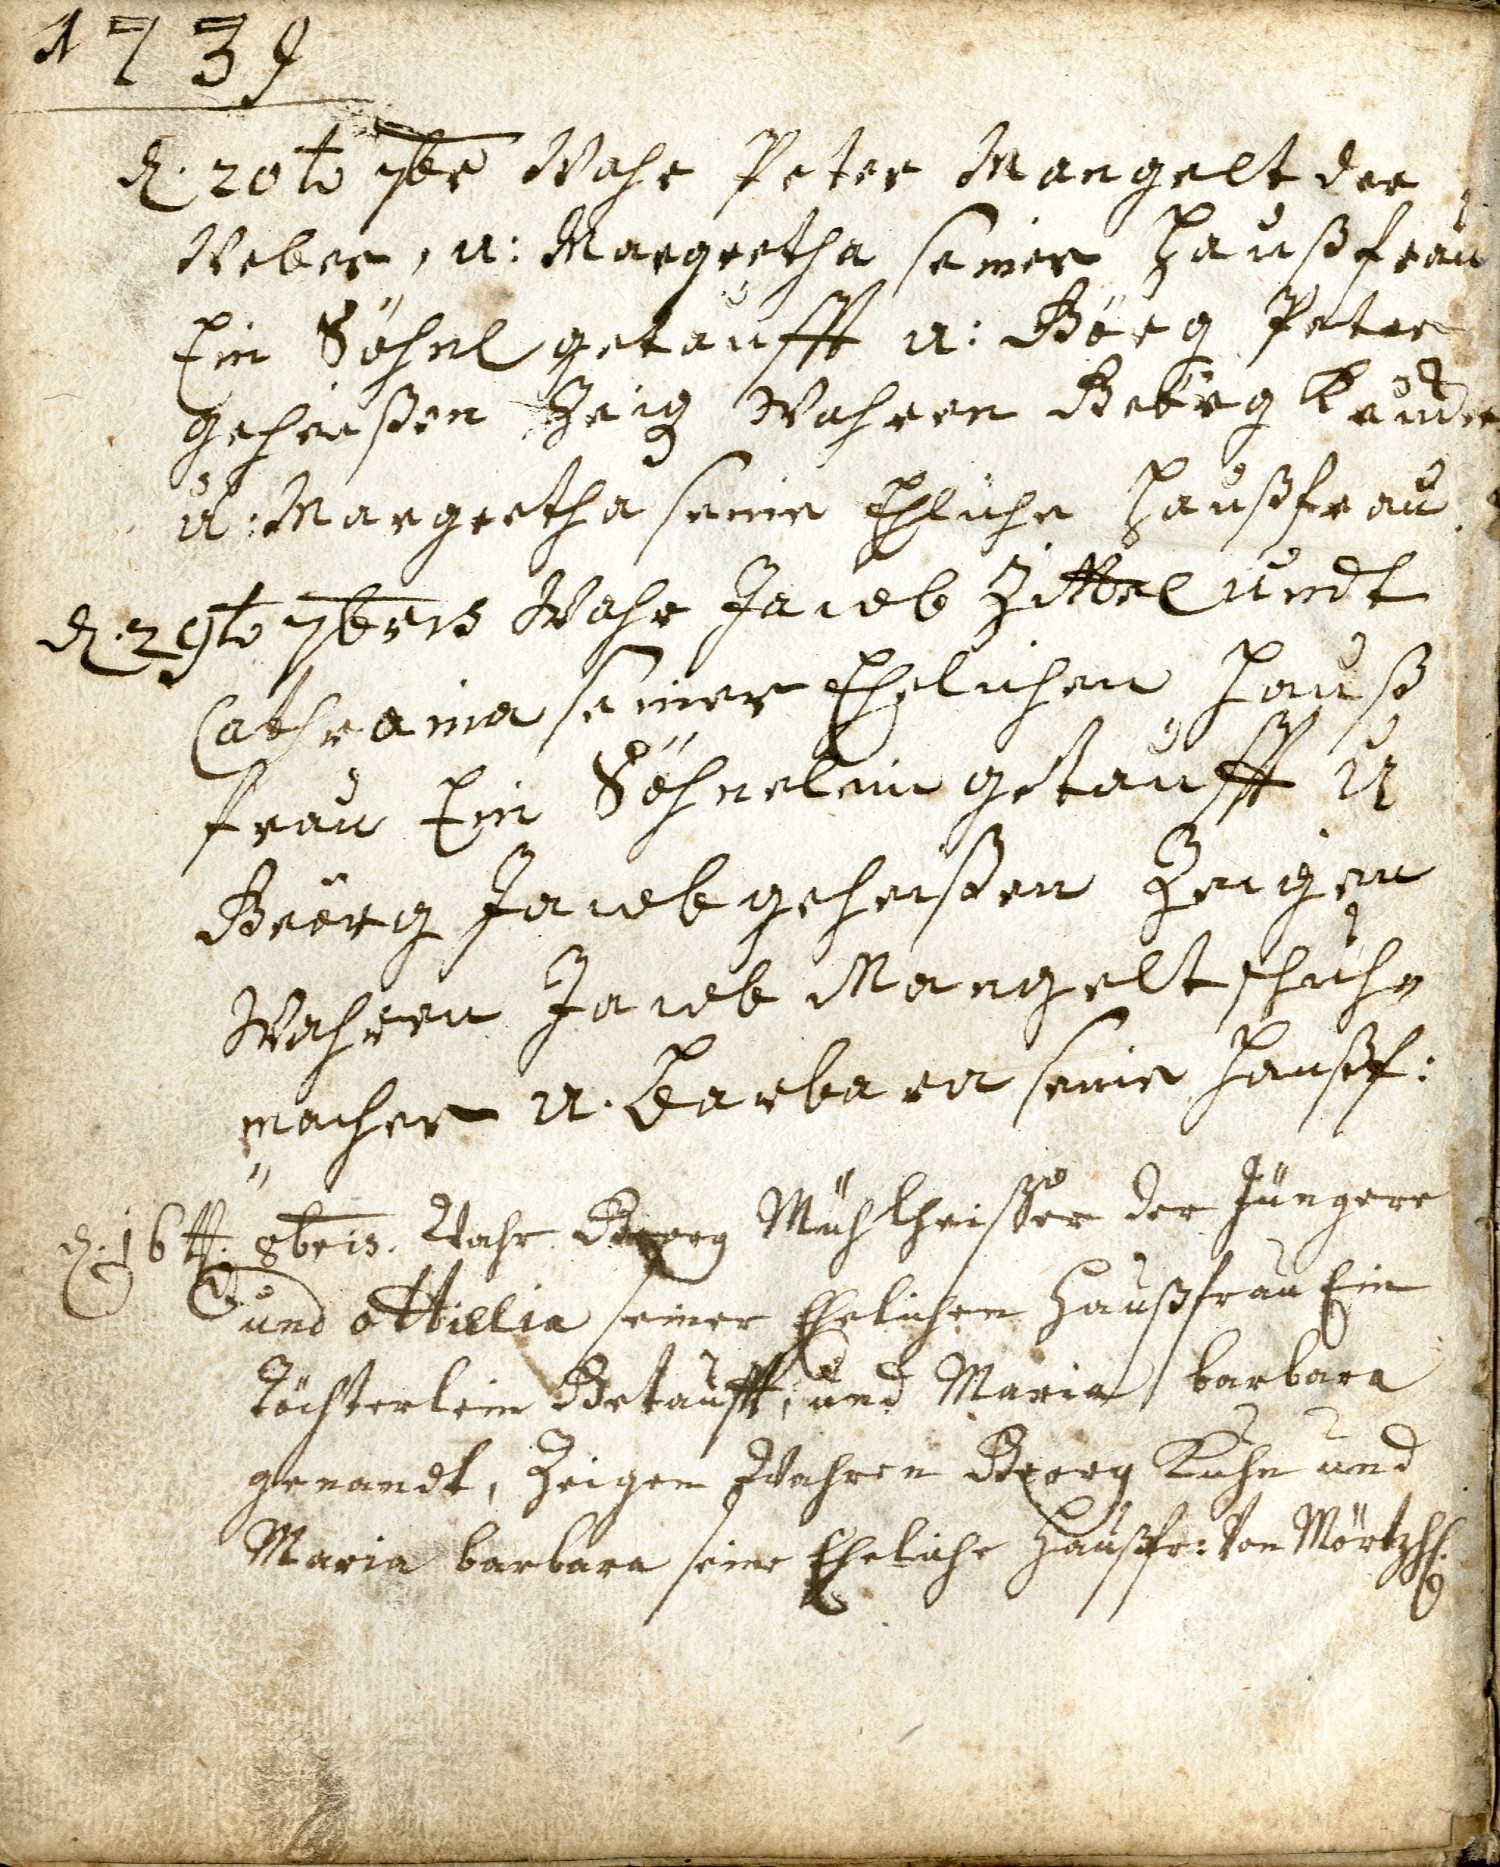 1739
d. 20t 7br Wahr Peter Mangelt der
Weber, u: Margretha seiner Haußfrau
Ein Söhnl getaufft u: Görg Peter
geheißen Zeig Wahren Geörg
u: Margretha seine Ehliche Haußfrau.
d. 29t 7bris Wahr Jacob Zittel undt
Cathraina seiner Ehelichen Hauß
frau Ein Söhnelein getaufft u
Geörg Jacob geheißen Zeigen
Wahren Jacob Mangelt schuh
macher u. Barbara seine Haußf:
d. 16tt. 8bris. Wahr Georg Mühlheisser der Jüngere
und ottillia seiner Ehelichen Haußfrau Ein
Töchterlein Getaufft, und Maria barbara
genandt, Zeigen Wahren Georg Kuhn und
Maria barbara seine Eheliche Haußfr: Von Mörtzh.